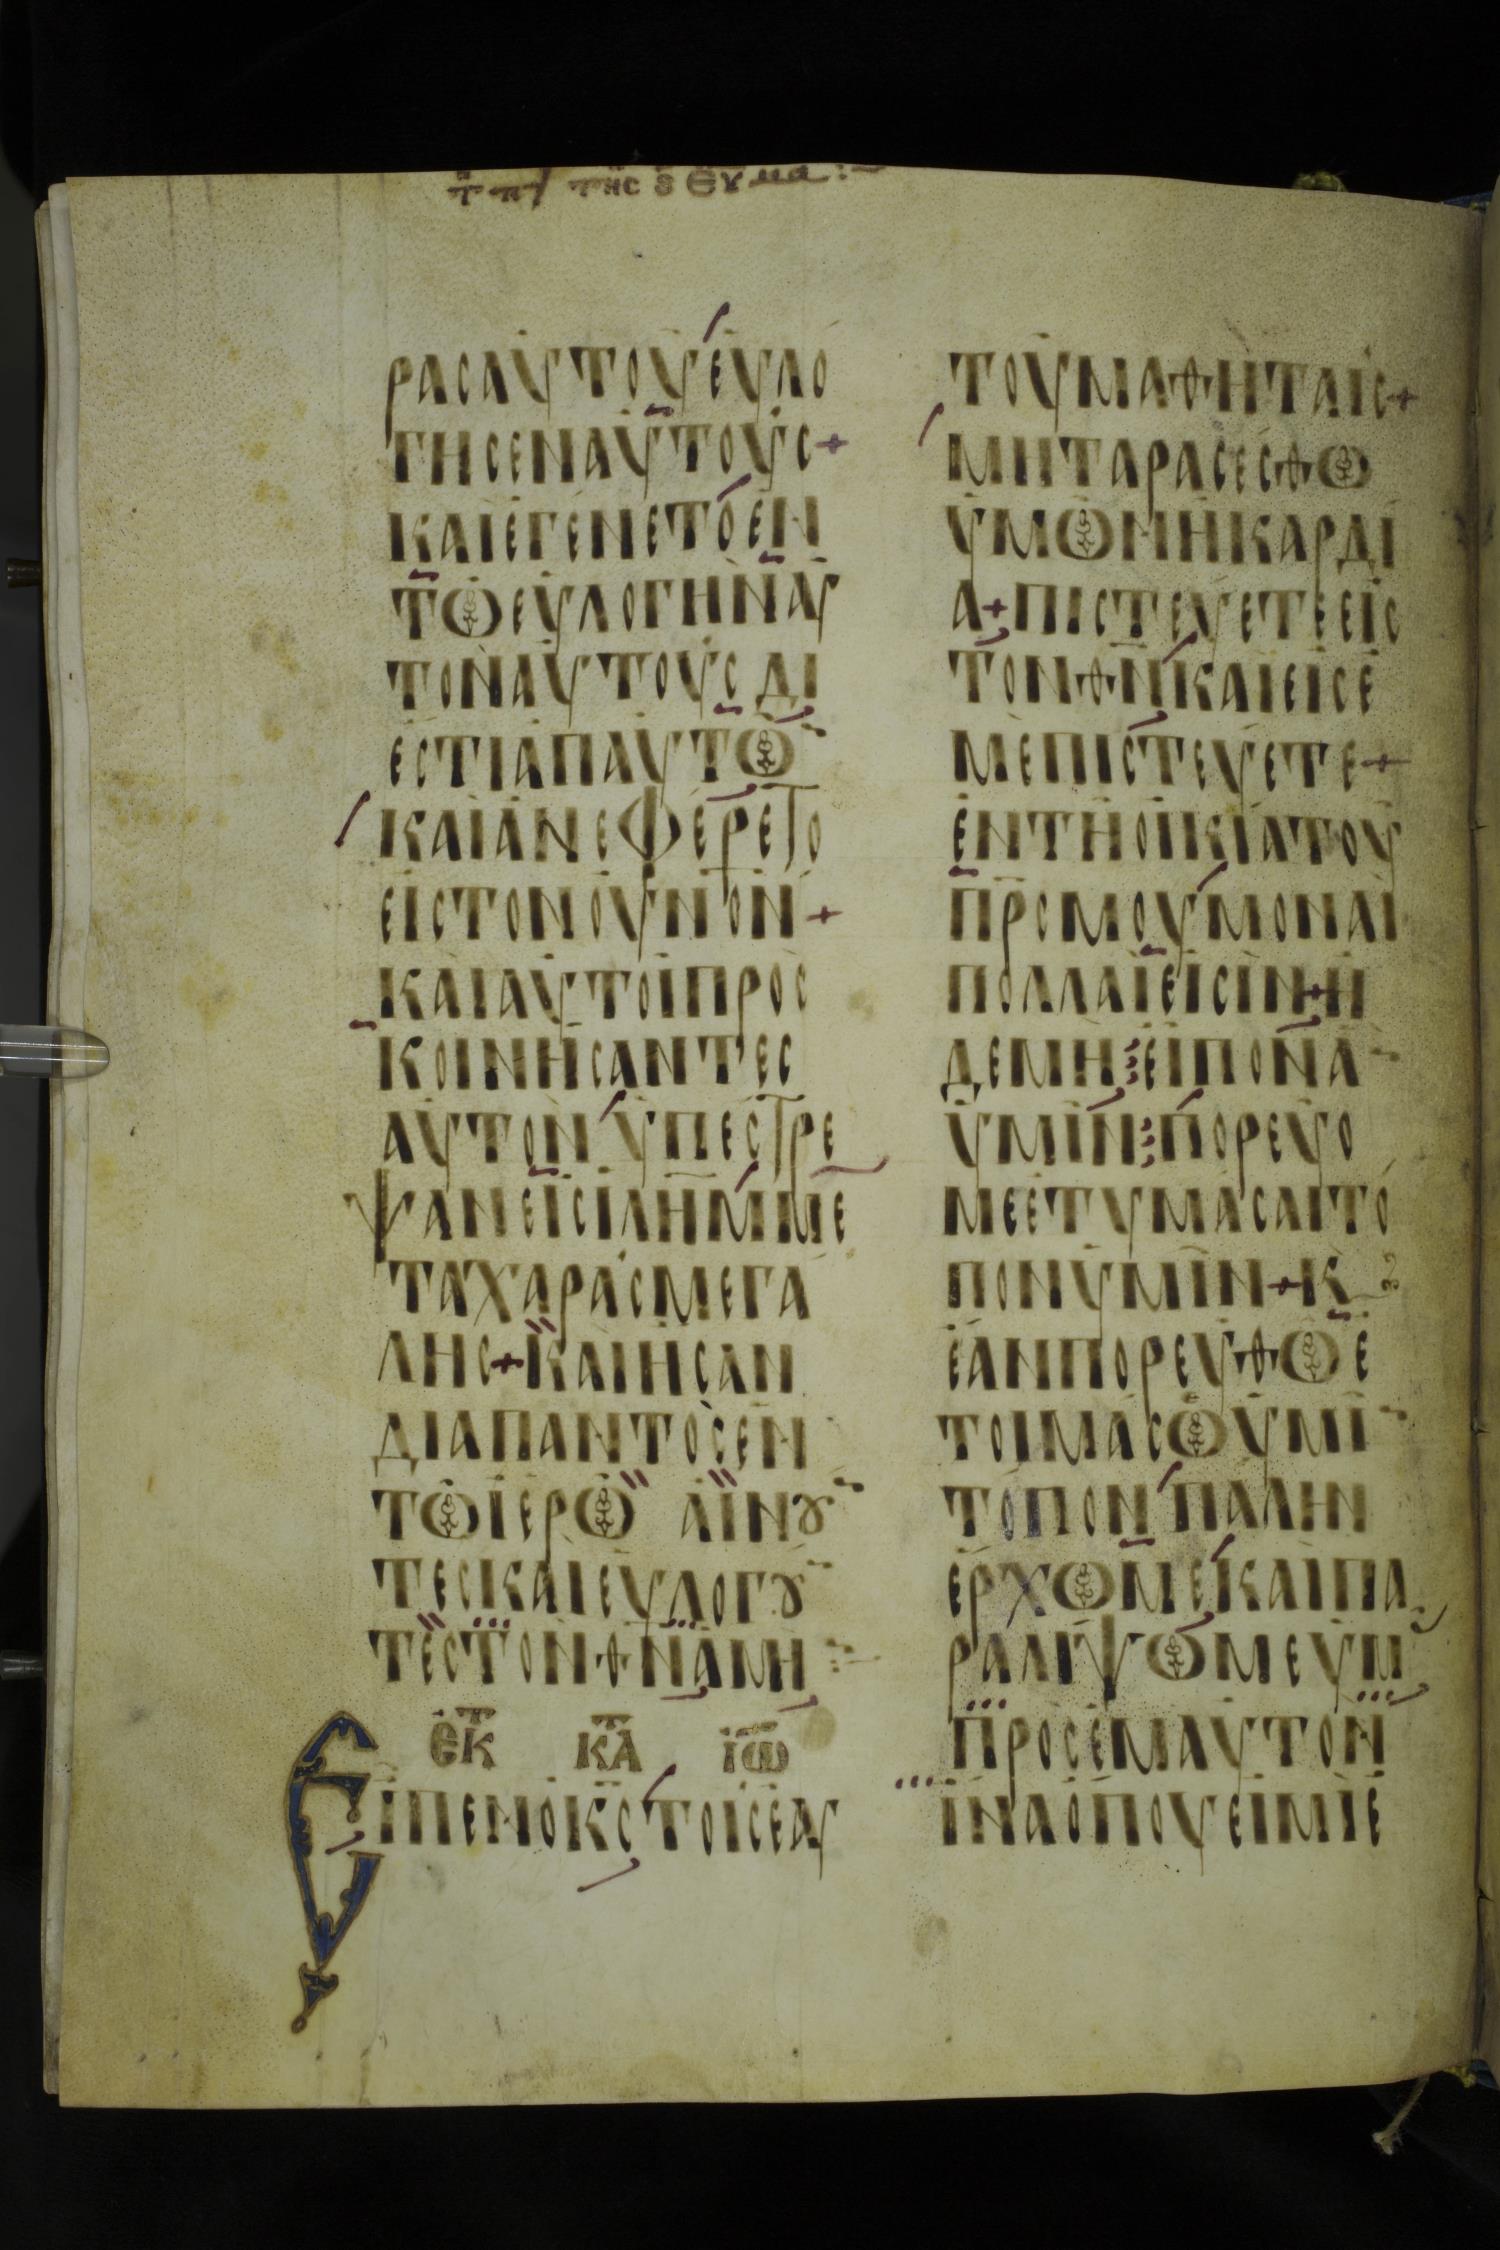 ΡΑСΑΥΤΟΥΕΥΛΟ
ΓΗСΕΝΑΥΤΟΥС+
ΚΑΙΕΓΕΝΕΤΟΕΝ
ΤΩΕΥΛΟΓΗΝΑΥ
ΤΟΝΑΥΤΟΥСΔΙ
ΕСΤΙΑΠΑΥΤΩ
ΚΑΙΑΝΕΦΕΡΕΤΟ
ΕΙСΤΟΝΟΥΝΟΝ+
ΚΑΙΑΥΤΟΙΠΡΟС
ΚΟΙΝΗСΑΝΤΕС
ΑΥΤΟΝΥΠΕСΤΡΕ
ΨΑΝΕΙСΙΛΗΜΜΕ
ΤΑΧΑΡΑСΜΕΓΑ
ΛΗС+ΚΑΙΗСΑΝ
ΔΙΑΠΑΝΤΟСΕΝ
ΤΩΙΕΡΩ ΑΙΝȢ
ΤΕСΚΑΙΕΥΛΟΓȢ
ΤΕСΤΟΝΘΝΑΜΗ
ΕΚΤ ΚΑΤ ΙΩ
ΕΙΠΕΝΟΚСΤΟΙСΕΑΥ
ΤΟΥΜΑΘΗΤΑΙС+
ΜΗΤΑΡΑСΕСΘΩ
ΥΜΩΝΗΚΑΡΔΙ
Α+ΠΙСΤΕΥΕΤΕΕΙС
ΤΟΝΘΝΚΑΙΕΙСΕ
ΜΕΠΙСΤΕΥΕΤΕ+
ΕΝΤΗΟΙΚΙΑΤΟΥ
ΠΡСΜΟΥΜΟΝΑΙ
ΠΟΛΛΑΙΕΙСΙΝ+Η
ΔΕΜΗ⋮ΕΙΠΟΝΑ
ΥΜΙΝ⋮ΠΟΡΕΥΟ
ΜΕΕΤΥΜΑСΑΙΤΟ
ΠΟΝΥΜΙΝ+Κ
ΕΑΝΠΟΡΕΥΘΩΕ
ΤΟΙΜΑСΩΥΜΙ
ΤΟΠΟΝΠΑΛΗΝ
ΕΡΧΩΜΕΚΑΙΠΑ
ΡΑΛΙΨΩΜΕΥΜ
ΠΡΟСΕΜΑΥΤΟΝ
ΙΝΑΟΠΟΥΕΙΜΙΕ